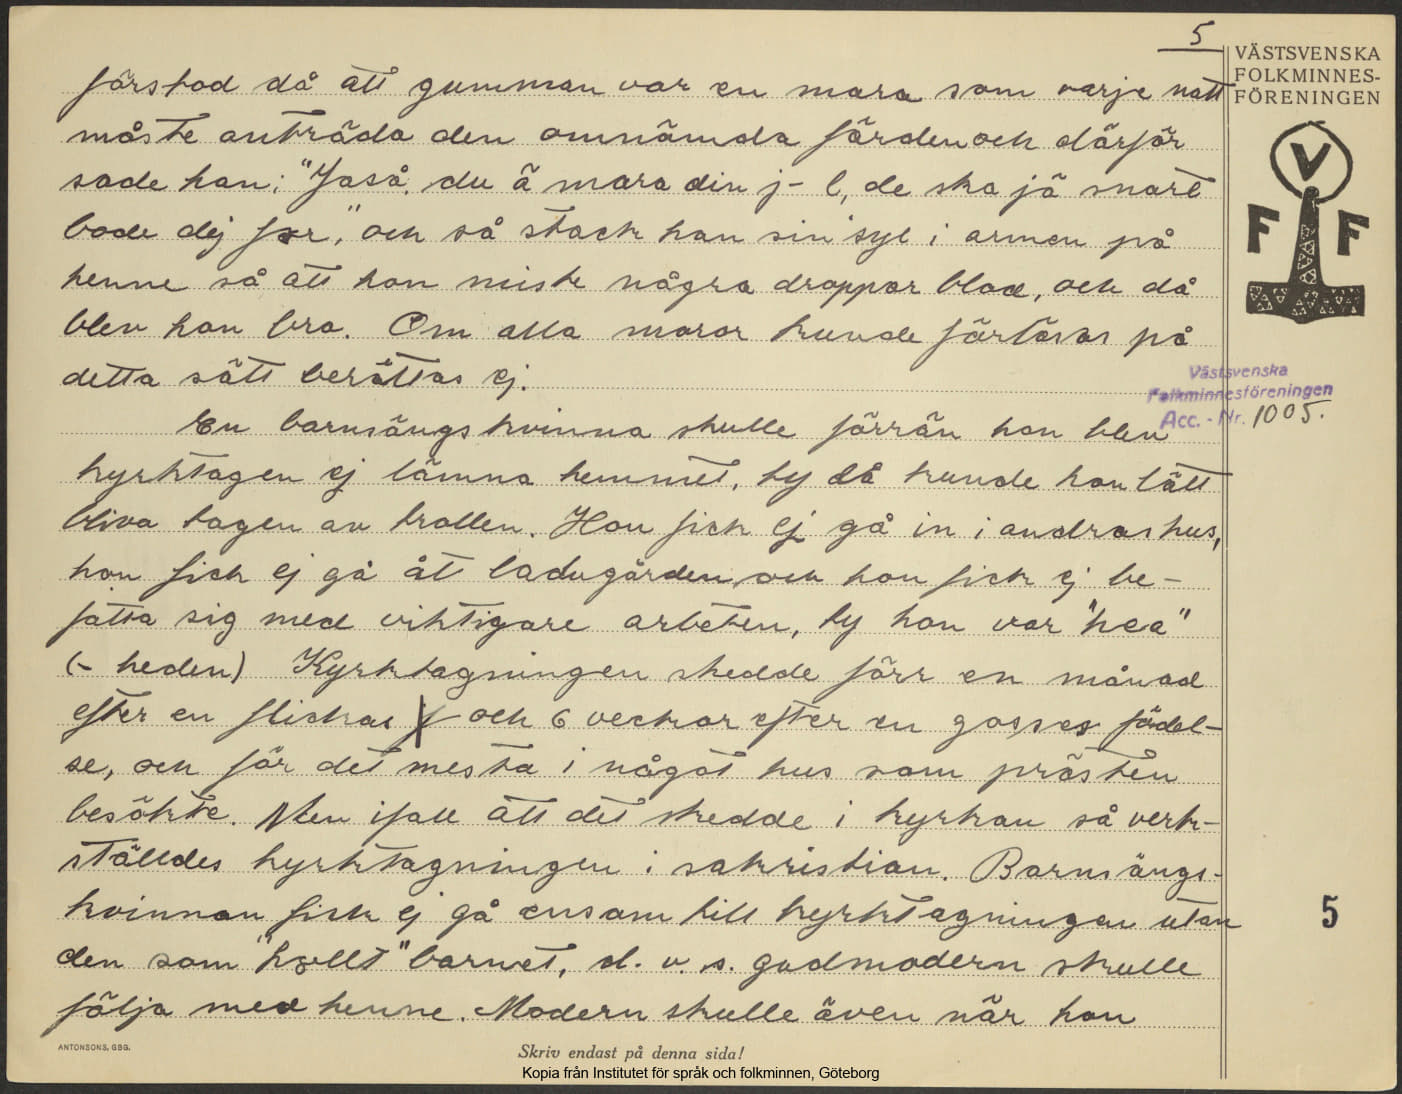 5
förstod då att gumman var en mara som varje natt
måste anträda den omnämda färden och därför
sade han: "Jaså, du ä mara din j-l, de ska jä snart
bode dej fær", och så stack han sin syl i armen på
henne så att hon miste några droppar blod, och då
blev hon bra. Om alla maror kunde förlösas på
detta sätt berättas ej.
En barnsängskvinna skulle förrän hon blev
kyrktagen ej lämna hemmet, ty då kunde hon lätt
bliva tagen av trollen. Hon fick ej gå in i andras hus,
hon fick ej gå åt ladugården, och hon fick ej be-
fatta sig med viktigare arbeten, ty hon var "hea"
(- heden) Kyrktagningen skedde förr en månad
efter en flickas och 6 veckor efter en gosses födel-
se, och för det mesta i något hus som prästen
besökte. Men ifall att det skedde i kyrkan så verk-
ställdes kyrktagningen i sakristian. Barnsängs-
kvinnan fick ej gå ensam till kyrktagningen utan
den som "høllt" barnet, d. v. s. gudmodern skulle
följa med henne. Modern skulle även när hon
VÄSTSVENSKA
FOLKMINNES-
FÖRENINGEN
V
F F
Västsvenska
Folkminnesföreningen
Acc. - Nr. 1005.
5
ANTONSONS, GBG.
Skriv endast på denna sida!
Kopia från Institutet för språk och folkminnen, Göteborg